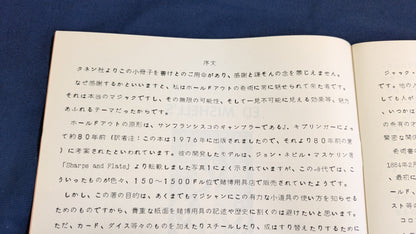 序文
タネン社よりこの小冊子を書けとのご用命があり、感謝と謙そんの念を感じえません。
なぜ感謝するかといいますと、私はホールドアウトの奇術に常に魅せられて来た者です。
それは本当のマジックですし、その無限の可能性、そして一見不可能に見える効果等、魅力
あふれるテーマだったからです。
ホールドアウトの原形は、サンフランシスコのギャンブラーであるJ.キプリンガーによっ
て約80年前(訳者注:この本は1976年に出版されましたので、それより80年前の意
)に考案されたといわれています。彼の開発したモデルは、ジョン・ネビル・マスケリン著
「Sharps and Flats」より転載しました写真1に示されていますが、この時代では、こ
ういったものが色々、150〜1500ドル位で賭博用具店で販売されていたようです。
しかし、この著の目的は、あくまでもマジシャンにこの有力な小道具の使い方を知らせる
ためのものですから、貴重な紙面を賭博用具の記述や歴史に割くのは避けたいと思います。
ただ、カード、ダイス等々のものを加えたりスチールしたり、或はすり替えたりするために
ジャック
です。他の
しても人が
、いつかは
の共有のオ
奇術書の
1884年
、最初に
ホールド
ストその他